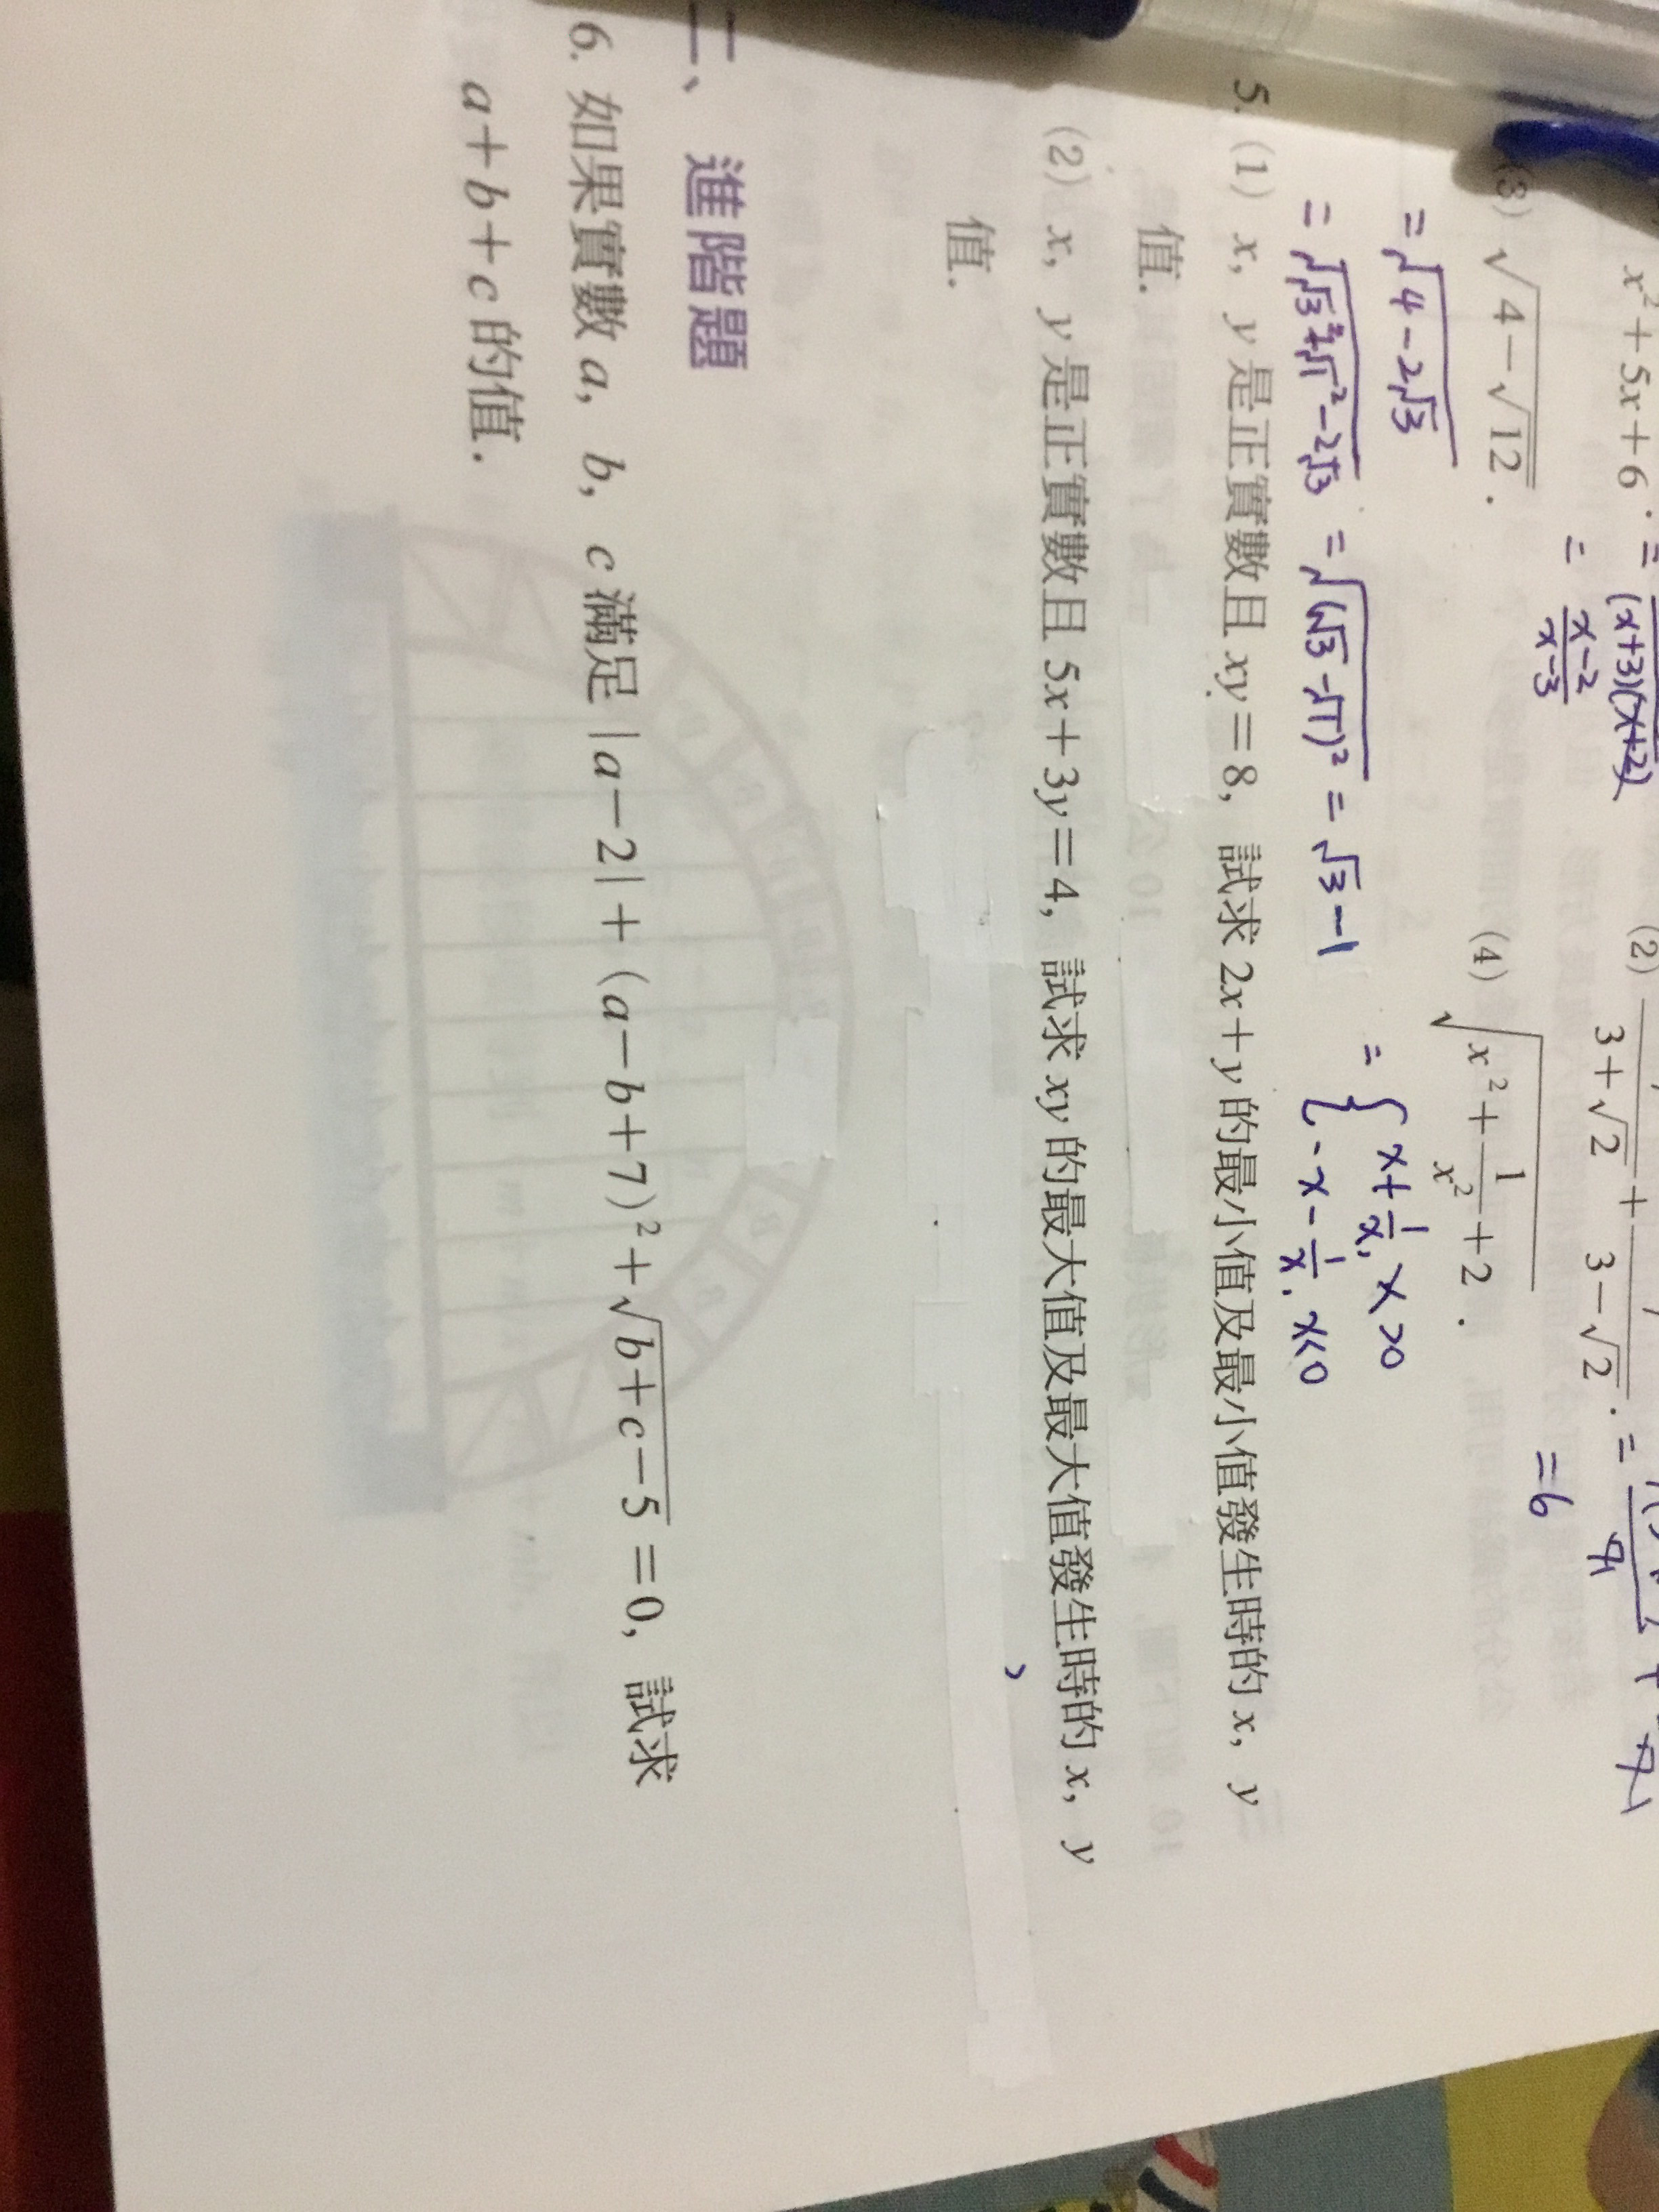 x²+5x+6. = (x+3)(x+2)
= x-2/x-3
(2) 3+√2 + 3-√2 . =
7
= 6
(3) √(4-√12) .
(4) √(x²+1/x²+2) .
= √(4-2√3)
= { x+1/x, x>0
-x-1/x, x<0
= √(√3²+√1²-2√3) = √((√3-√1)²) = √3-1
5. (1) x, y 是正實數且 xy=8, 試求 2x+y 的最小值及最小值發生時的 x, y
值.
(2) x, y 是正實數且 5x+3y=4, 試求 xy 的最大值及最大值發生時的 x, y
值.
二、進階題
6. 如果實數 a, b, c 滿足 |a-2|+(a-b+7)²+√(b+c-5)=0, 試求
a+b+c 的值.